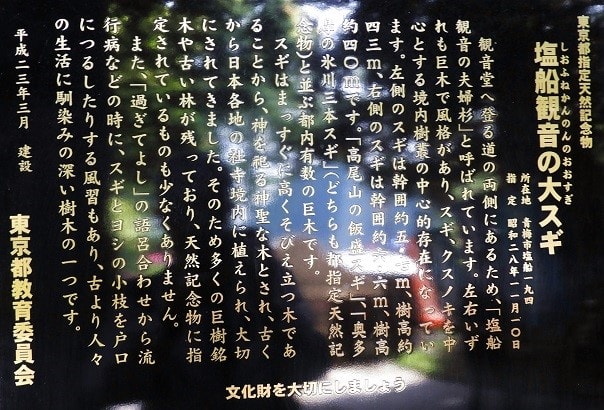 東京都指定天然記念物
しおふねかんのんのおおすぎ
塩船観音の大スギ
所在地 青梅市塩船一九四
指定 昭和二八年一一月一〇日
観音堂へ登る道の両側にあるため、「塩船
観音の夫婦杉」と呼ばれています。左右いず
れも巨木で風格があり、スギ、クスノキを中
心とする境内樹叢の中心的存在になってい
ます。左側のスギは幹囲約五・m、樹高約
四三m、右側のスギは幹囲約六・六m、樹高
約四〇mです。「高尾山の飯盛スギ」「奥多
の氷川三本スギ」(どちらも都指定天然記
念物と並ぶ都内有数の巨木です。
スギはまっすぐに高くそびえ立つ木であ
ることから、神を祀る神聖な木とされ、古く
から日本各地の社寺境内に植えられ、大切
にされてきました。そのため多くの巨樹銘
木や古い林が残っており、天然記念物に指
定されているものも少なくありません。
また、「過ぎてよし」の語呂合わせから流
行病などの時に、スギとヨシの小枝を戸口
につるしたりする風習もあり、古より人々
の生活に馴染みの深い樹木の一つです。
平成二三年三月 建設
東京都教育委員会
文化財を大切にしましょう